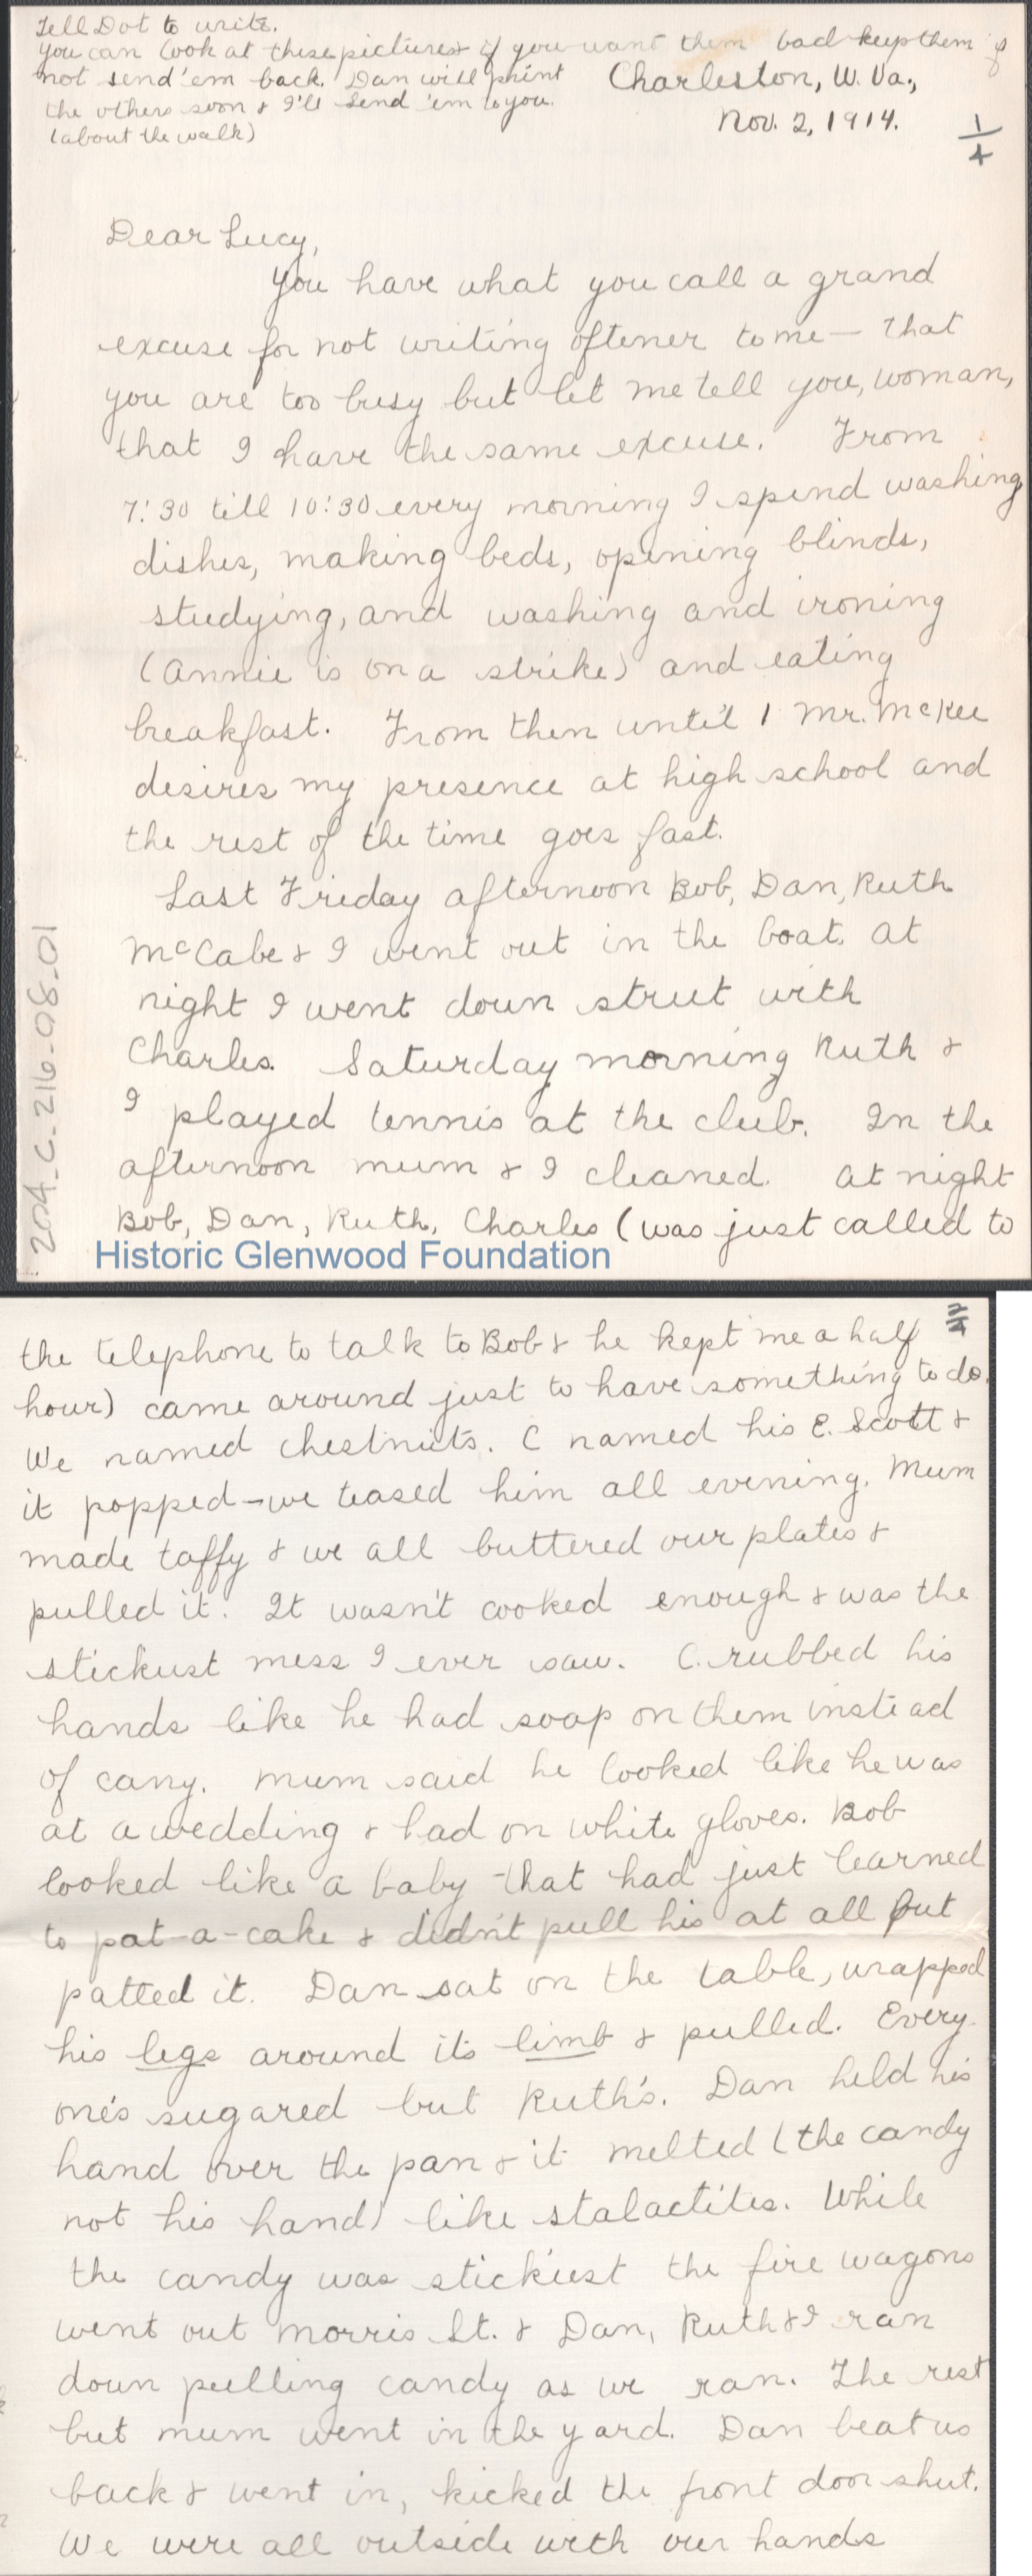 Tell Dot to write.
you can look at these pictures & if you want them bad keep them if
not send 'em back. Dan will print
the others soon & I'll send 'em to you.
(about the walk)
Charleston, W. Va.,
Nov. 2, 1914.
1/4
Dear Lucy,
You have what you call a grand
excuse for not writing oftener to me — that
you are too busy but let me tell you, woman,
that I have the same excuse. From
7:30 till 10:30 every morning I spend washing
dishes, making beds, opening blinds,
studying, and washing and ironing
(Annie is on a strike) and eating
breakfast. From then until 1 Mr. McKee
desires my presence at high school and
the rest of the time goes fast.
Last Friday afternoon Bob, Dan, Ruth
McCabe & I went out in the boat. At
night I went down street with
Charles. Saturday morning Ruth &
I played tennis at the club. In the
afternoon mum & I cleaned. At night
Bob, Dan, Ruth, Charles (was just called to
204-C-216-08-01
Historic Glenwood Foundation
2/4
the telephone to talk to Bob & he kept me a half
hour) came around just to have something to do.
We named chestnuts. C named his E. Scott &
it popped – we teased him all evening. Mum
made taffy & we all buttered our plates &
pulled it. It wasn't cooked enough & was the
stickust mess I ever saw. C. rubbed his
hands like he had soap on them instead
of cany. Mum said he looked like he was
at a wedding & had on white gloves. Bob
looked like a baby that had just learned
to pat-a-cake & didn't pull his at all but
patted it. Dan sat on the table, wrapped
his legs around its limb & pulled. Every
one's sugared but Ruth's. Dan held his
hand over the pan & it melted (the candy
not his hand) like stalactites. While
the candy was stickiest the fire wagons
went out Morris St. & Dan, Ruth & I ran
down pulling candy as we ran. The rest
but mum went in the yard. Dan beat us
back & went in, kicked the front door shut.
We were all outside with our hands